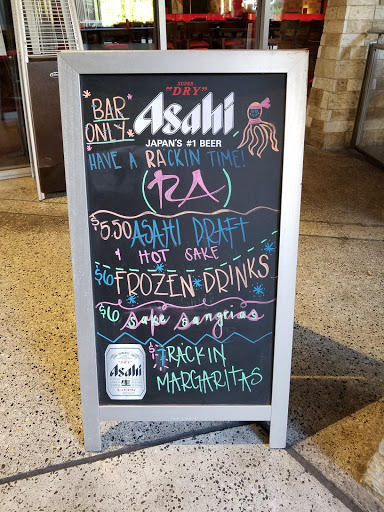 BAR
ONLY
SUPER
"DRY"
Asahi
JAPAN'S #1 BEER
HAVE A RACKIN TIME!
(RA)
$5.50 ASAHI DRAFT
& HOT SAKE
$6 FROZEN DRINKS
$6 sake sangrias
$7 RACKIN
MARGARITAS
Asahi